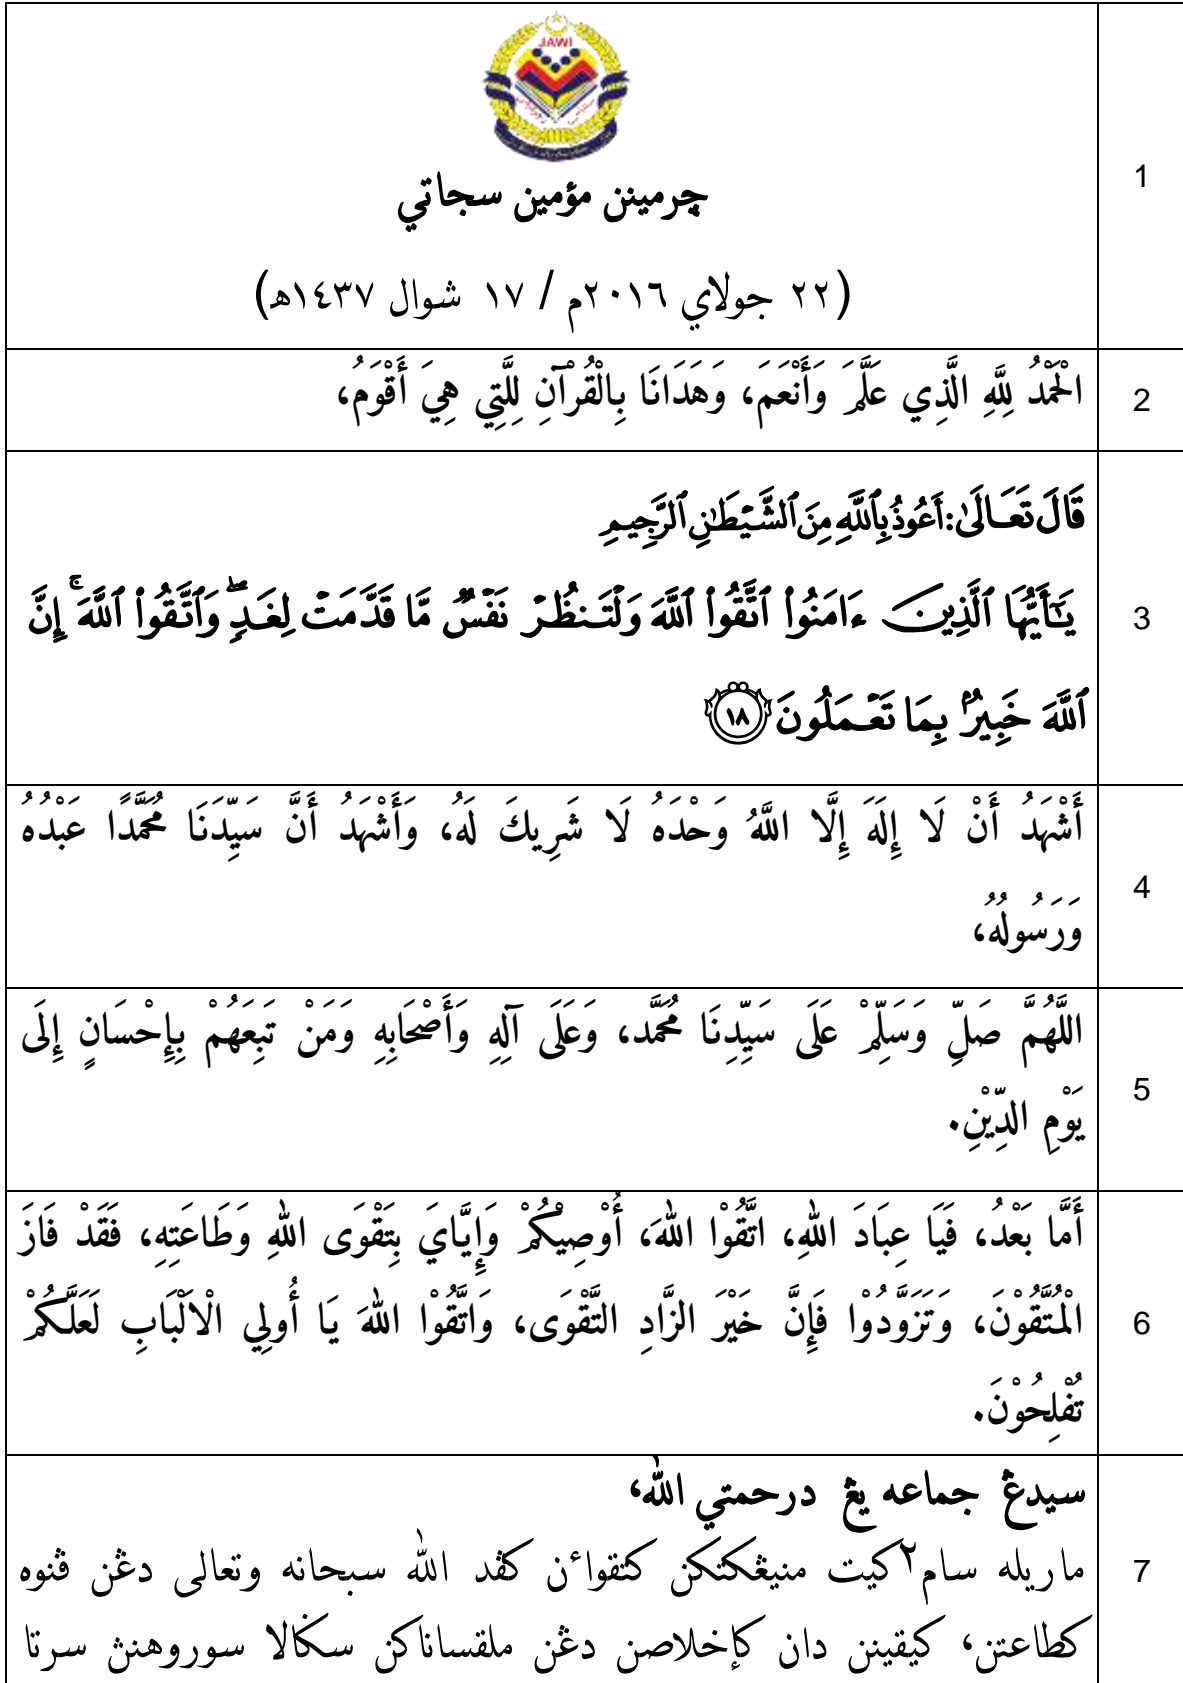 JAWI
چرمينن مؤمين سجاتي
(٢٢ جولاي ٢٠١٦م / ١٧ شوال ١٤٣٧ه)
1
الْحَمْدُ لِلَّهِ الَّذِي عَلَّمَ وَأَنْعَمَ، وَهَدَانَا بِالْقُرْآنِ لِلَّتِي هِيَ أَقْوَمُ،
2
قَالَ تَعَالَىٰ: أَعُوذُ بِٱللَّهِ مِنَ ٱلشَّيْطَٰنِ ٱلرَّجِيمِ
يَٰٓأَيُّهَا ٱلَّذِينَ ءَامَنُوا۟ ٱتَّقُوا۟ ٱللَّهَ وَلْتَنظُرْ نَفْسٌ مَّا قَدَّمَتْ لِغَدٍ ۖ وَٱتَّقُوا۟ ٱللَّهَ ۚ إِنَّ
ٱللَّهَ خَبِيرٌۢ بِمَا تَعْمَلُونَ ١٨
3
أَشْهَدُ أَنْ لَا إِلَهَ إِلَّا اللَّهُ وَحْدَهُ لَا شَرِيكَ لَهُ، وَأَشْهَدُ أَنَّ سَيِّدَنَا مُحَمَّدًا عَبْدُهُ
وَرَسُولُهُ،
4
اللَّهُمَّ صَلِّ وَسَلِّمْ عَلَى سَيِّدِنَا مُحَمَّد، وَعَلَى آلِهِ وَأَصْحَابِهِ وَمَنْ تَبِعَهُمْ بِإِحْسَانٍ إِلَى
يَوْمِ الدِّيْنِ.
5
أَمَّا بَعْدُ، فَيَا عِبَادَ اللهِ، اتَّقُوْا اللهَ، أُوْصِيْكُمْ وَإِيَّايَ بِتَقْوَى اللهِ وَطَاعَتِهِ، فَقَدْ فَازَ
الْمُتَّقُوْنَ، وَتَزَوَّدُوْا فَإِنَّ خَيْرَ الزَّادِ التَّقْوَى، وَاتَّقُوْا اللهَ يَا أُولِي الْاَلْبَابِ لَعَلَّكُمْ
تُفْلِحُوْنَ.
6
سيدڠ جماعه يڠ درحمتي الله،
ماريله سام٢ كيت منيڠكتكن كتقواءن كڤد الله سبحانه وتعالى دڠن ڤنوه
كطاعتن، كيقينن دان كإخلاصن دڠن ملقساناكن سݢالا سوروهنڽ سرتا
7